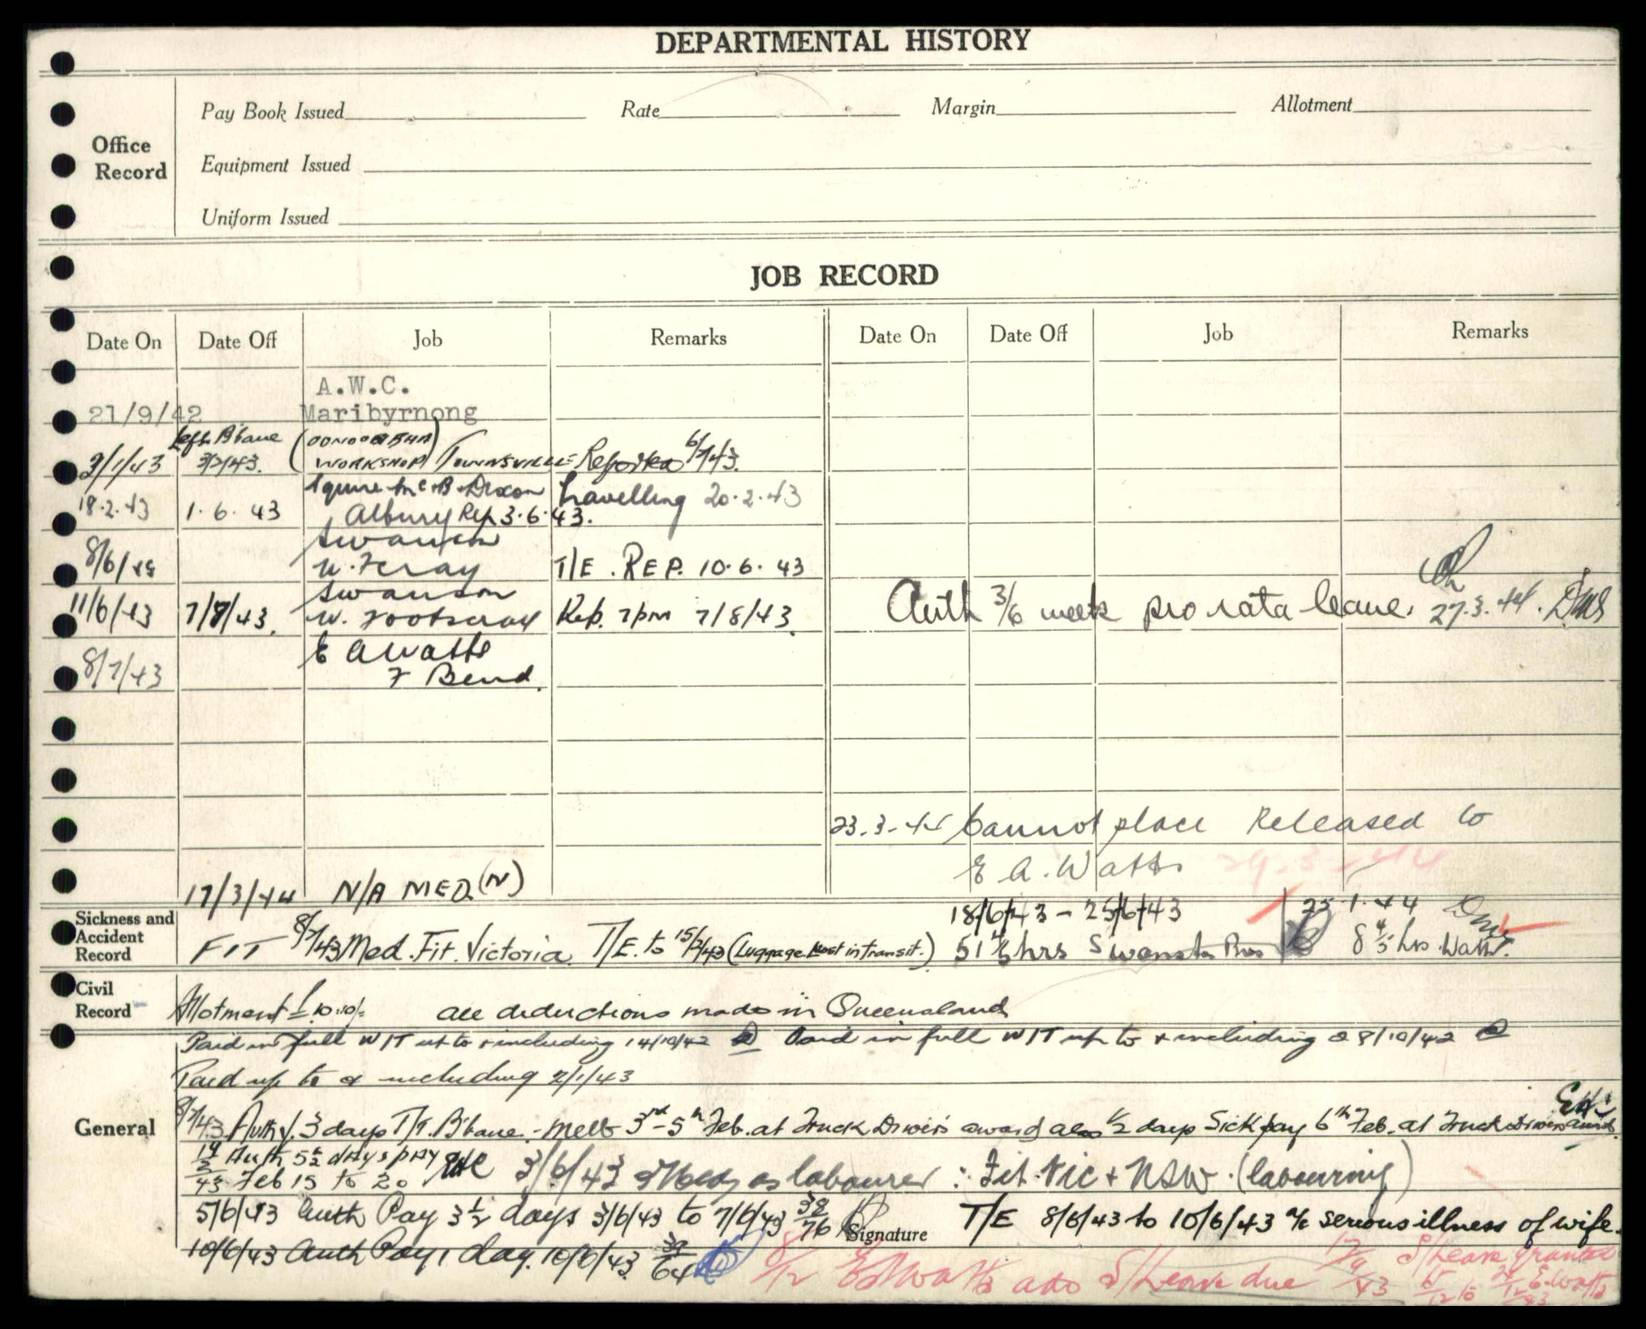 DEPARTMENTAL HISTORY
Office Record
Pay Book Issued Rate Margin Allotment
Equipment Issued
Uniform Issued
JOB RECORD
Date On Date Off Job Remarks Date On Date Off Job Remarks
A.W.C.
21/9/42 Maribyrnong
Left B'bane
2/1/43 WORKSHOP) TOWNSVILLE Reported 6/7/43.
18.2.43 1.6.43 Squire McB Dixon travelling 20.2.43
Albury Rep 3.6.43.
8/6/43 Swanson
W. F'cray T/E. REP. 10.6.43
11/6/43 7/7/43. Swanson
W. Footscray Rep. 7pm 7/8/43.
Auth 3/6 week pro rata leave. 27.3.44.
8/7/43 E A Watts
F Bend.
23.3.44 Cannot place Released to
E A. Watts 29.3.44
17/3/44 N/A MED. (N)
Sickness and Accident Record
18/6/43 – 25/6/43 25.1.44
FIT 8/7/43 Med. Fit. Victoria. T/E. to 15/2/43 (Luggage lost in transit.) 51 hrs Swanston Bros 8 4/5 hrs Watts.
Civil Record
Allotment £10.10/- all deductions made in Queensland
General
Paid in full W/T up to & including 14/10/42 Paid in full W/T up to & including 28/10/42
Paid up to & including 2/1/43
8/7/43 Auth. 3 days T/T. B'bane - Melb 3rd - 5th Feb. at Truck Drivers award also 1/2 days Sick pay 6th Feb. at Truck Drivers award.
19/2/43 Auth 5½ days pay Feb 15 to 20 3/6/43 as labourer : Fit Vic & NSW. (labouring)
5/6/43 Auth Pay 3½ days 3/6/43 to 7/6/43 38/76 Signature T/E 8/6/43 to 10/6/43 a/c serious illness of wife.
10/6/43 Auth Pay 1 day. 10/6/43. 39/64
8/12 E A Watts S/Leave due 17/9/43 S/Leave granted